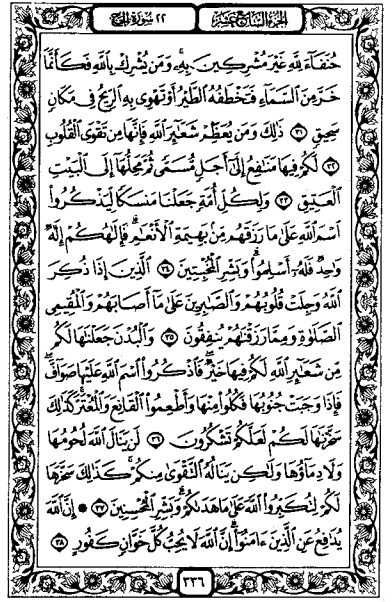 الجزء السابع عشر ٢٢ سورة الحج
حُنَفَآءَ لِلَّهِ غَيْرَ مُشْرِكِينَ بِهِۦۚ وَمَن يُشْرِكْ بِٱللَّهِ فَكَأَنَّمَا
خَرَّ مِنَ ٱلسَّمَآءِ فَتَخْطَفُهُ ٱلطَّيْرُ أَوْ تَهْوِى بِهِ ٱلرِّيحُ فِى مَكَانٍ
سَحِيقٍ ٣١ ذَٰلِكَ وَمَن يُعَظِّمْ شَعَٰٓئِرَ ٱللَّهِ فَإِنَّهَا مِن تَقْوَى ٱلْقُلُوبِ
٣٢ لَكُمْ فِيهَا مَنَٰفِعُ إِلَىٰٓ أَجَلٍ مُّسَمًّى ثُمَّ مَحِلُّهَآ إِلَى ٱلْبَيْتِ
ٱلْعَتِيقِ ٣٣ وَلِكُلِّ أُمَّةٍ جَعَلْنَا مَنسَكًا لِّيَذْكُرُوا۟
ٱسْمَ ٱللَّهِ عَلَىٰ مَا رَزَقَهُم مِّنۢ بَهِيمَةِ ٱلْأَنْعَٰمِۗ فَإِلَٰهُكُمْ إِلَٰهٌ
وَٰحِدٌ فَلَهُۥٓ أَسْلِمُوا۟ۗ وَبَشِّرِ ٱلْمُخْبِتِينَ ٣٤ ٱلَّذِينَ إِذَا ذُكِرَ
ٱللَّهُ وَجِلَتْ قُلُوبُهُمْ وَٱلصَّٰبِرِينَ عَلَىٰ مَآ أَصَابَهُمْ وَٱلْمُقِيمِى
ٱلصَّلَوٰةِ وَمِمَّا رَزَقْنَٰهُمْ يُنفِقُونَ ٣٥ وَٱلْبُدْنَ جَعَلْنَٰهَا لَكُم
مِّن شَعَٰٓئِرِ ٱللَّهِ لَكُمْ فِيهَا خَيْرٌۖ فَٱذْكُرُوا۟ ٱسْمَ ٱللَّهِ عَلَيْهَا صَوَآفَّۖ
فَإِذَا وَجَبَتْ جُنُوبُهَا فَكُلُوا۟ مِنْهَا وَأَطْعِمُوا۟ ٱلْقَانِعَ وَٱلْمُعْتَرَّۚ كَذَٰلِكَ
سَخَّرْنَٰهَا لَكُمْ لَعَلَّكُمْ تَشْكُرُونَ ٣٦ لَن يَنَالَ ٱللَّهَ لُحُومُهَا
وَلَا دِمَآؤُهَا وَلَٰكِن يَنَالُهُ ٱلتَّقْوَىٰ مِنكُمْۚ كَذَٰلِكَ سَخَّرَهَا
لَكُمْ لِتُكَبِّرُوا۟ ٱللَّهَ عَلَىٰ مَا هَدَىٰكُمْۗ وَبَشِّرِ ٱلْمُحْسِنِينَ ٣٧ ۞ إِنَّ ٱللَّهَ
يُدَٰفِعُ عَنِ ٱلَّذِينَ ءَامَنُوٓا۟ۗ إِنَّ ٱللَّهَ لَا يُحِبُّ كُلَّ خَوَّانٍ كَفُورٍ ٣٨
٣٣٦